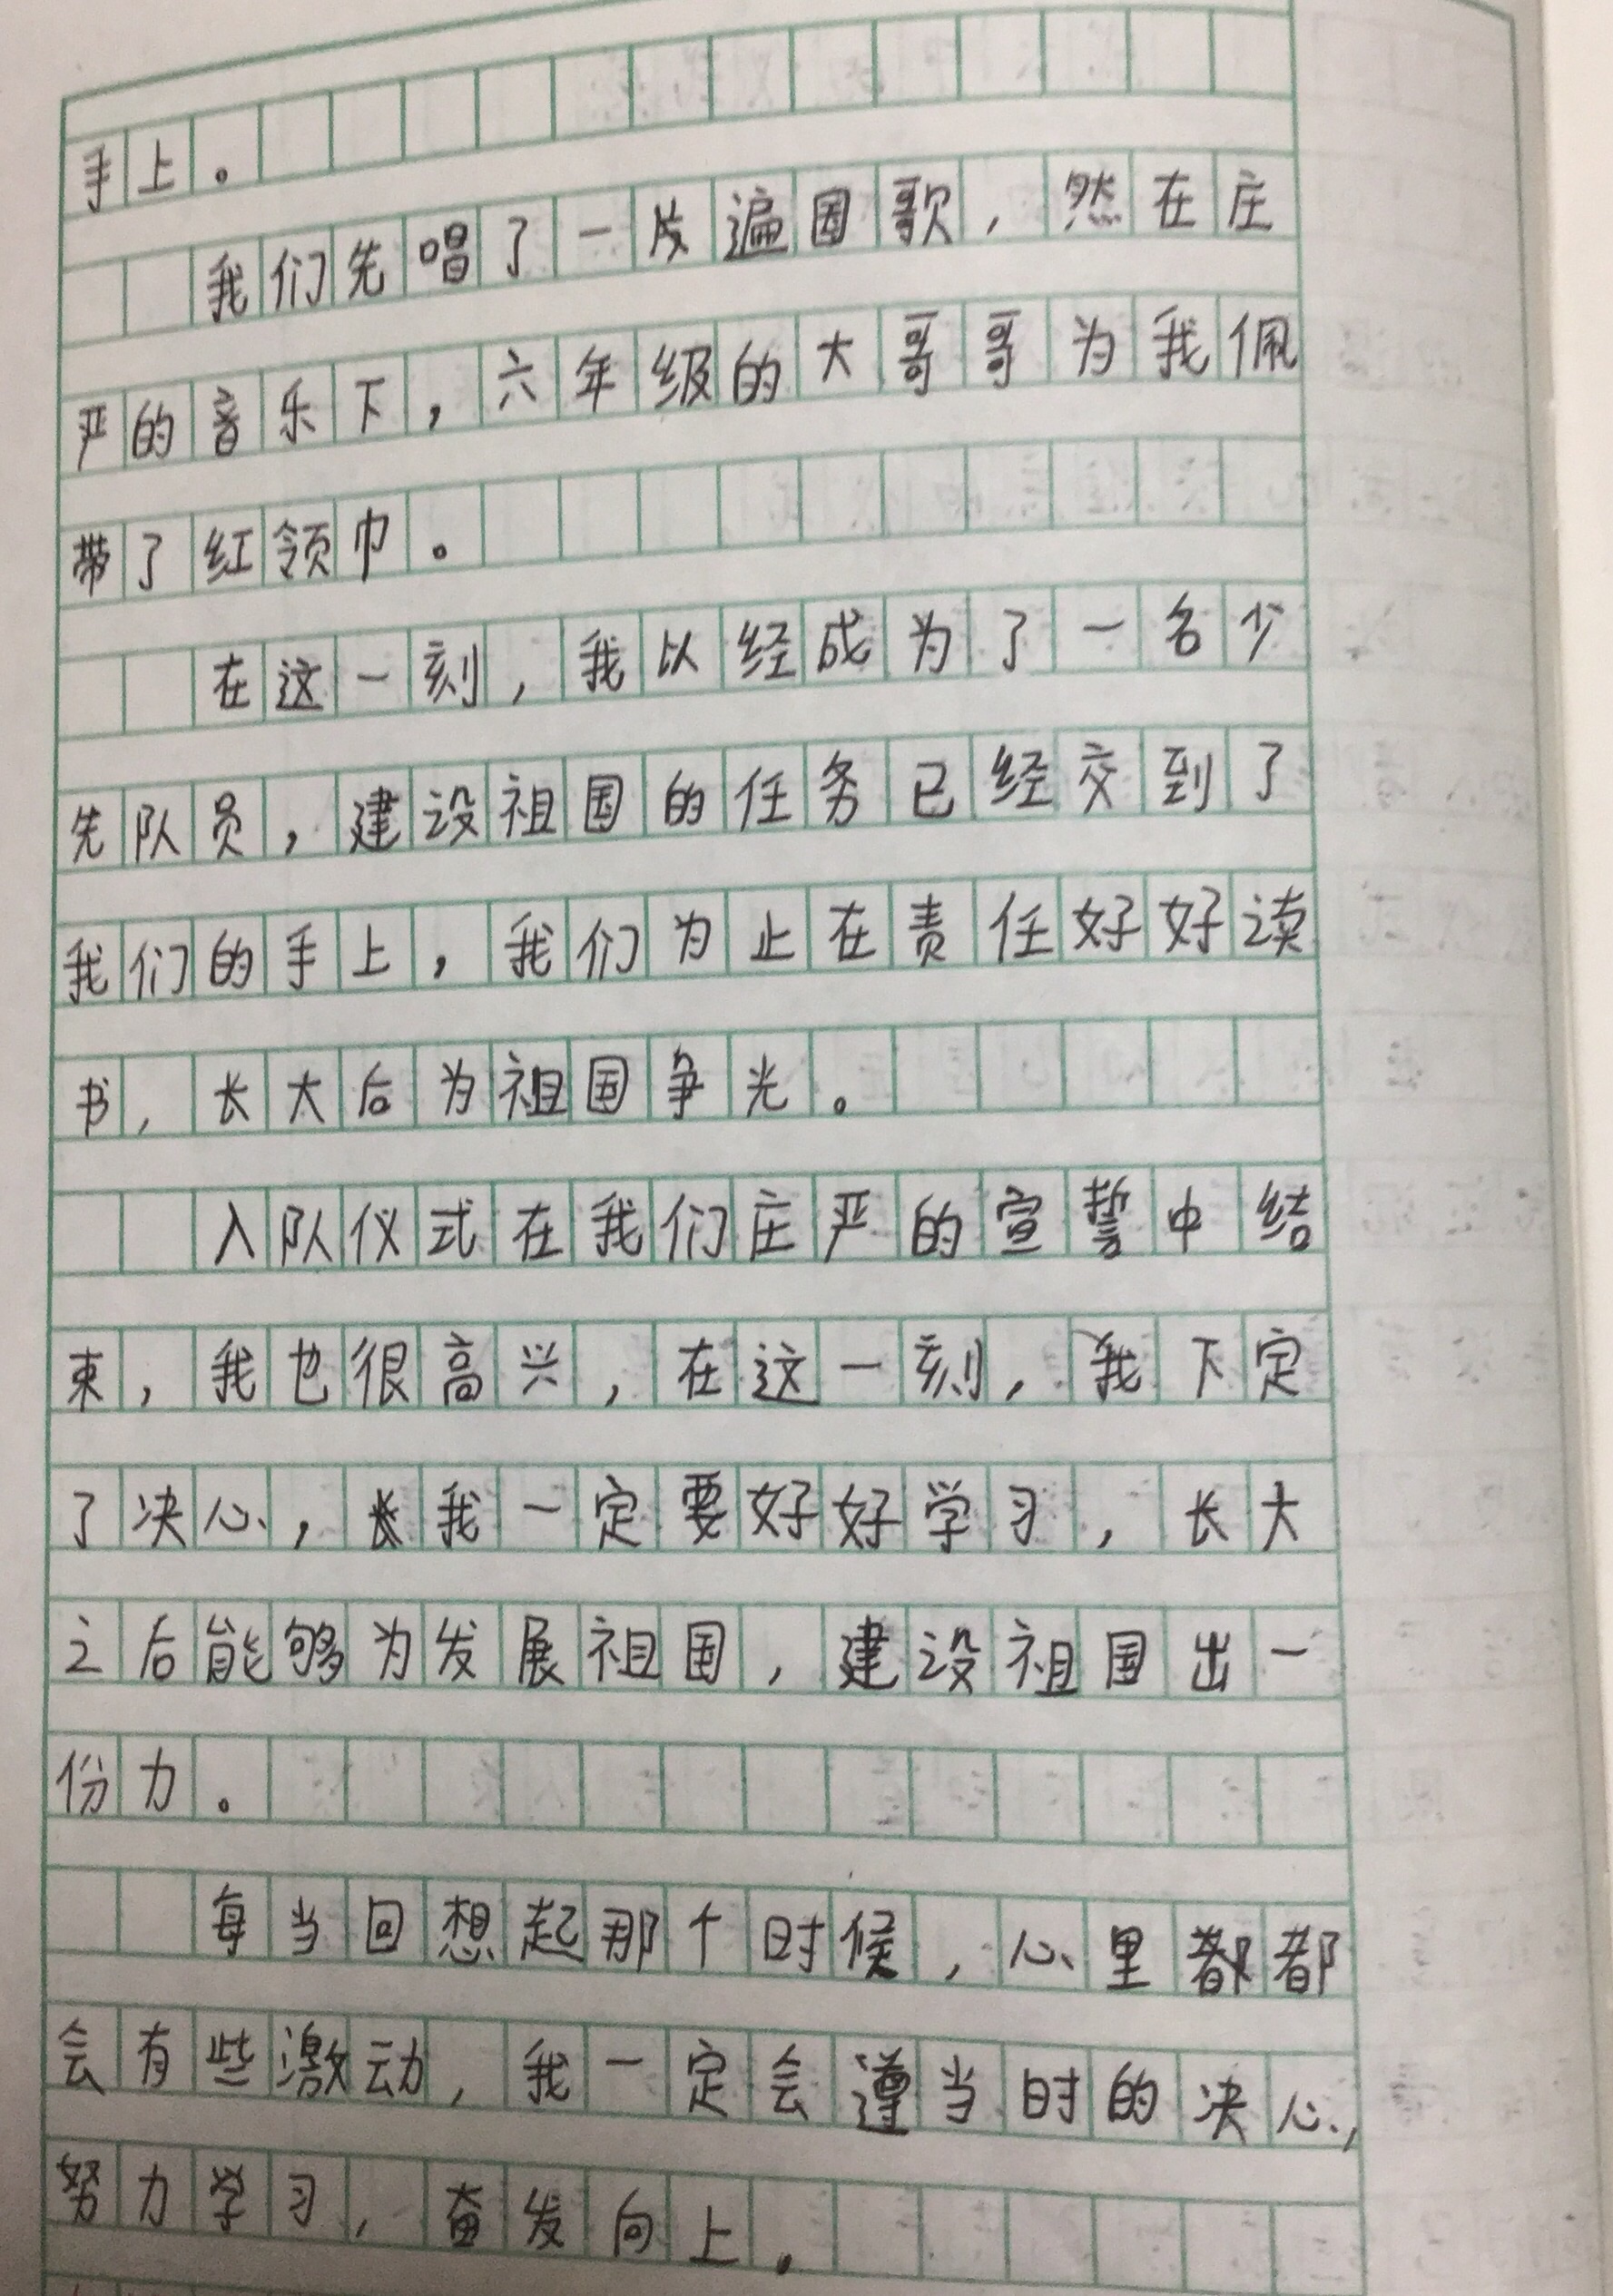 手上。
我们先唱了一片遍国歌，然在庄
严的音乐下，六年级的大哥哥为我佩
带了红领巾。
在这一刻，我以经成为了一名少
先队员，建设祖国的任务已经交到了
我们的手上，我们为止在责任好好读
书，长大后为祖国争光。
入队仪式在我们庄严的宣誓中结
束，我也很高兴，在这一刻，我下定
了决心，长我一定要好好学习，长大
之后能够为发展祖国，建设祖国出一
份力。
每当回想起那个时候，心里都都
会有些激动，我一定会遵当时的决心，
努力学习，奋发向上。